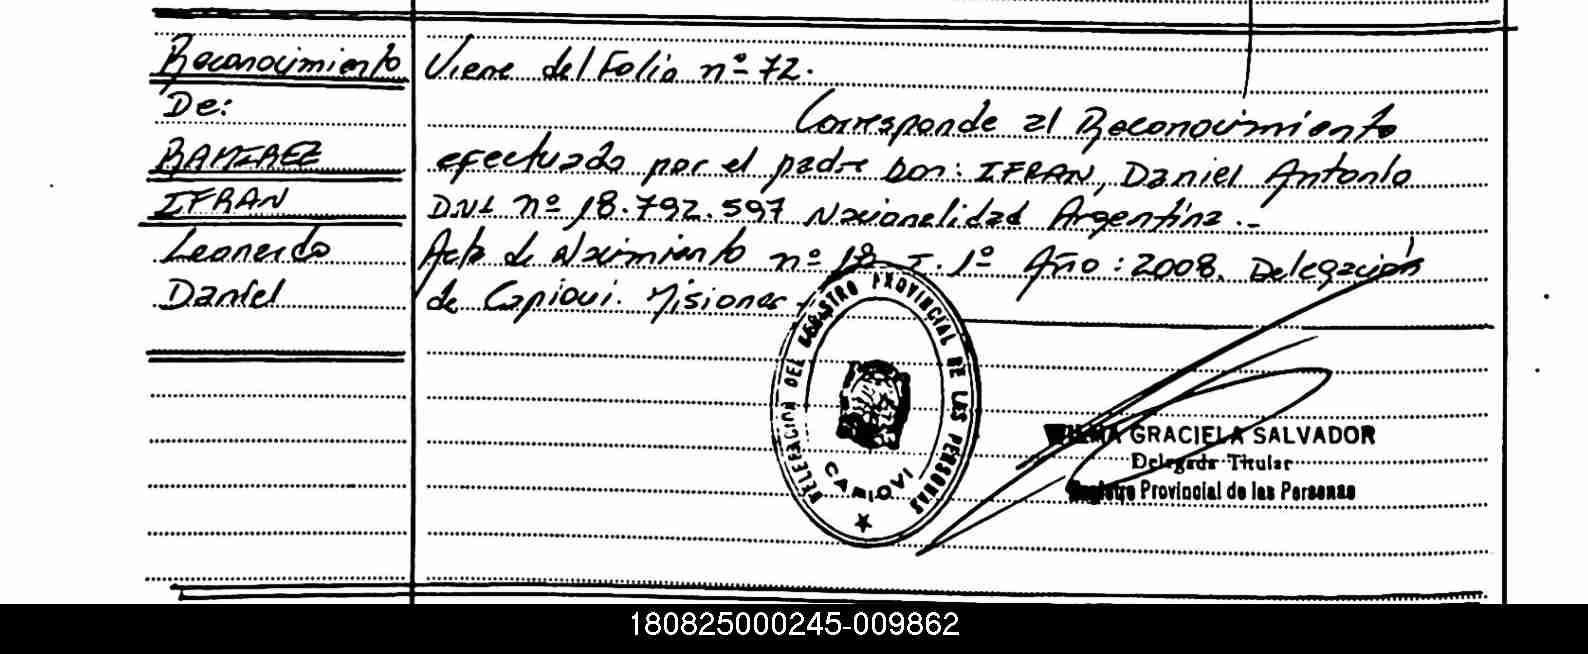 Reconocimiento
De:
RAMIREZ
IFRAN
Leonardo
Daniel
Viene del Folio nº 72.
Corresponde al Reconocimiento
efectuado por el padre Don: IFRAN, Daniel Antonio
D.N.I. nº 18.792.597 Nacionalidad Argentina.-
Acta de Nacimiento nº T. 1º Año: 2008. Delegación
de Capioui. Misiones.
DELEGACION DEL REGISTRO PROVINCIAL DE LAS PERSONAS
CAPIOVI
GRACIELA SALVADOR
Delegada Titular
Registro Provincial de las Personas
180825000245-009862